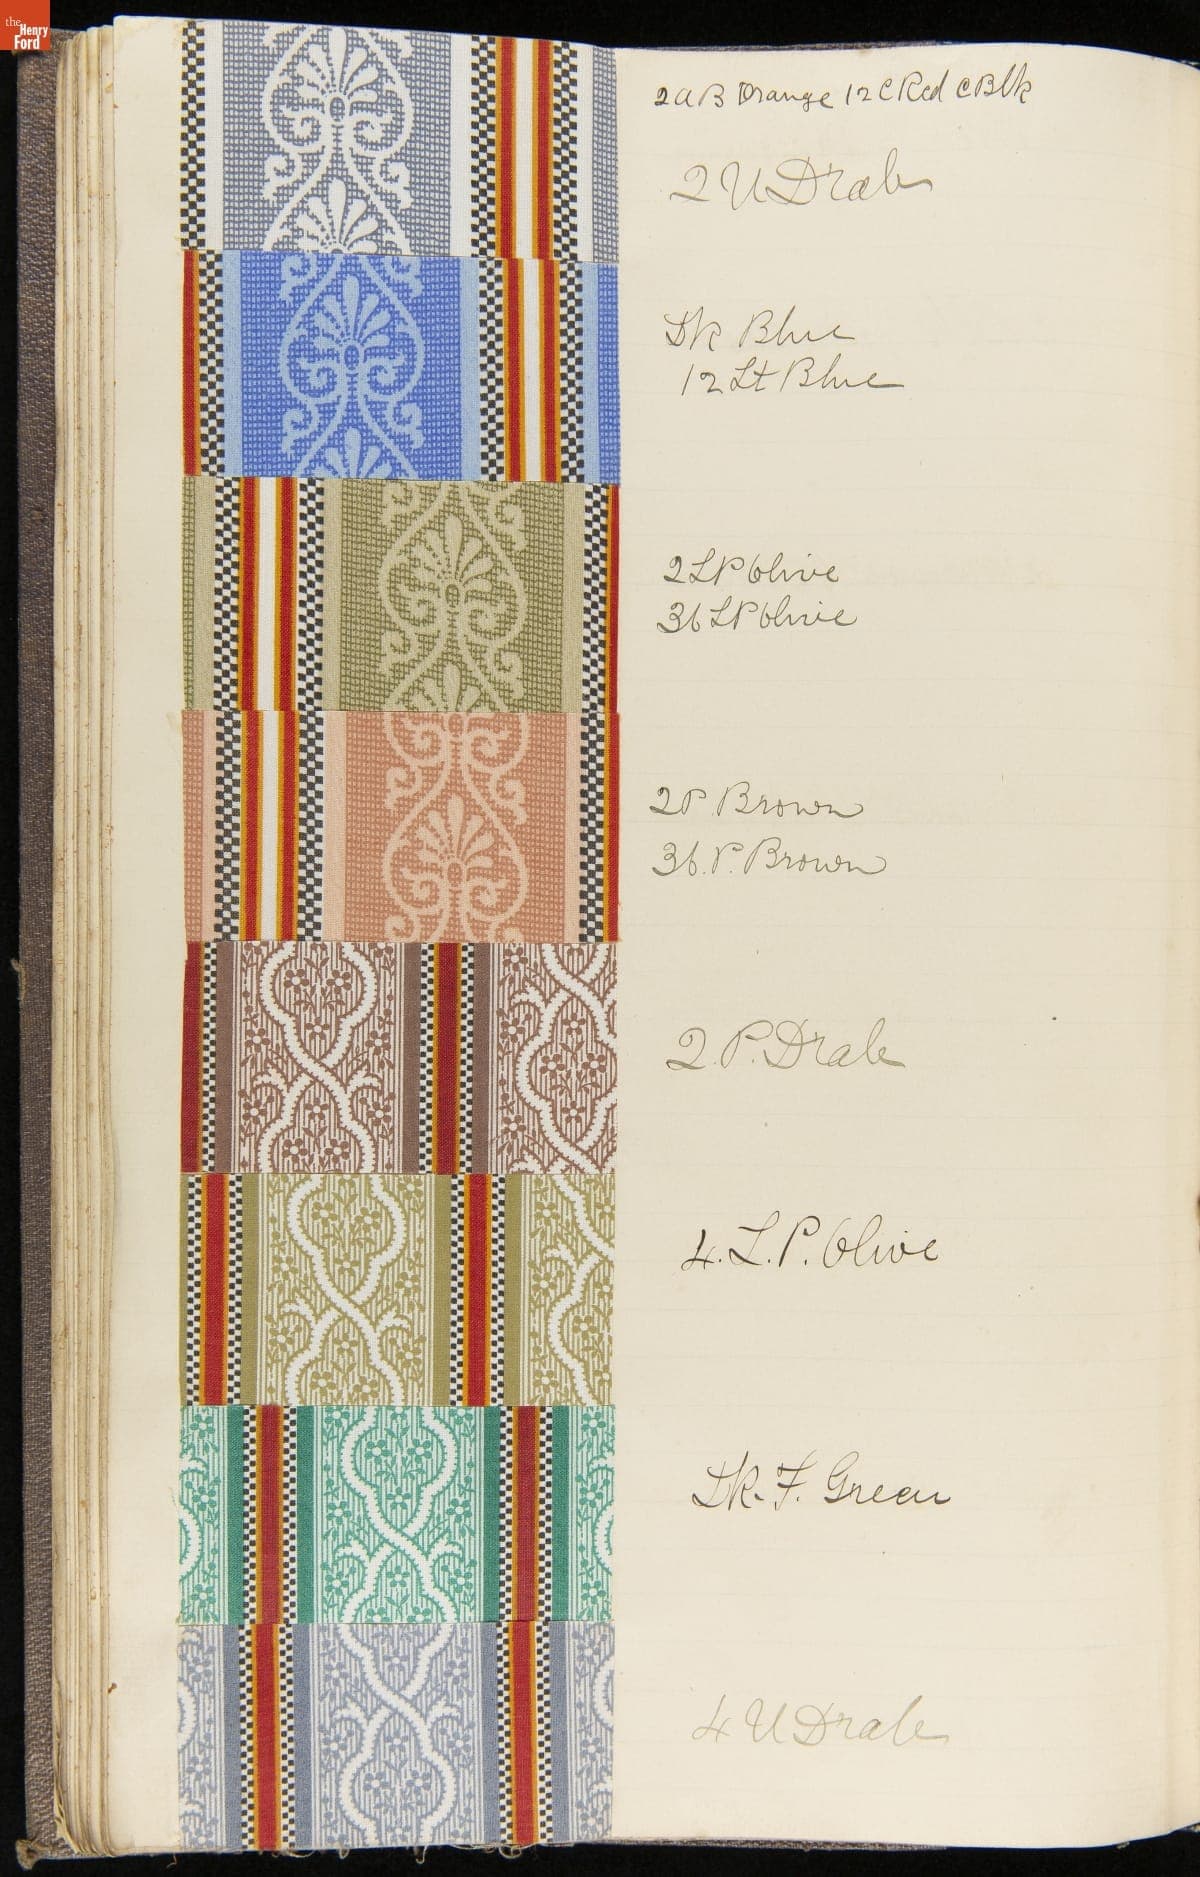 the Henry Ford
2 A B Orange 12 C Red C Blk
2 U Drab
Dk Blue
12 Lt Blue
2 LP Olive
36 LP Olive
2 P. Brown
36. P. Brown
2. P. Drab
4. L. P. Olive
Dk. F. Green
4 U Drab